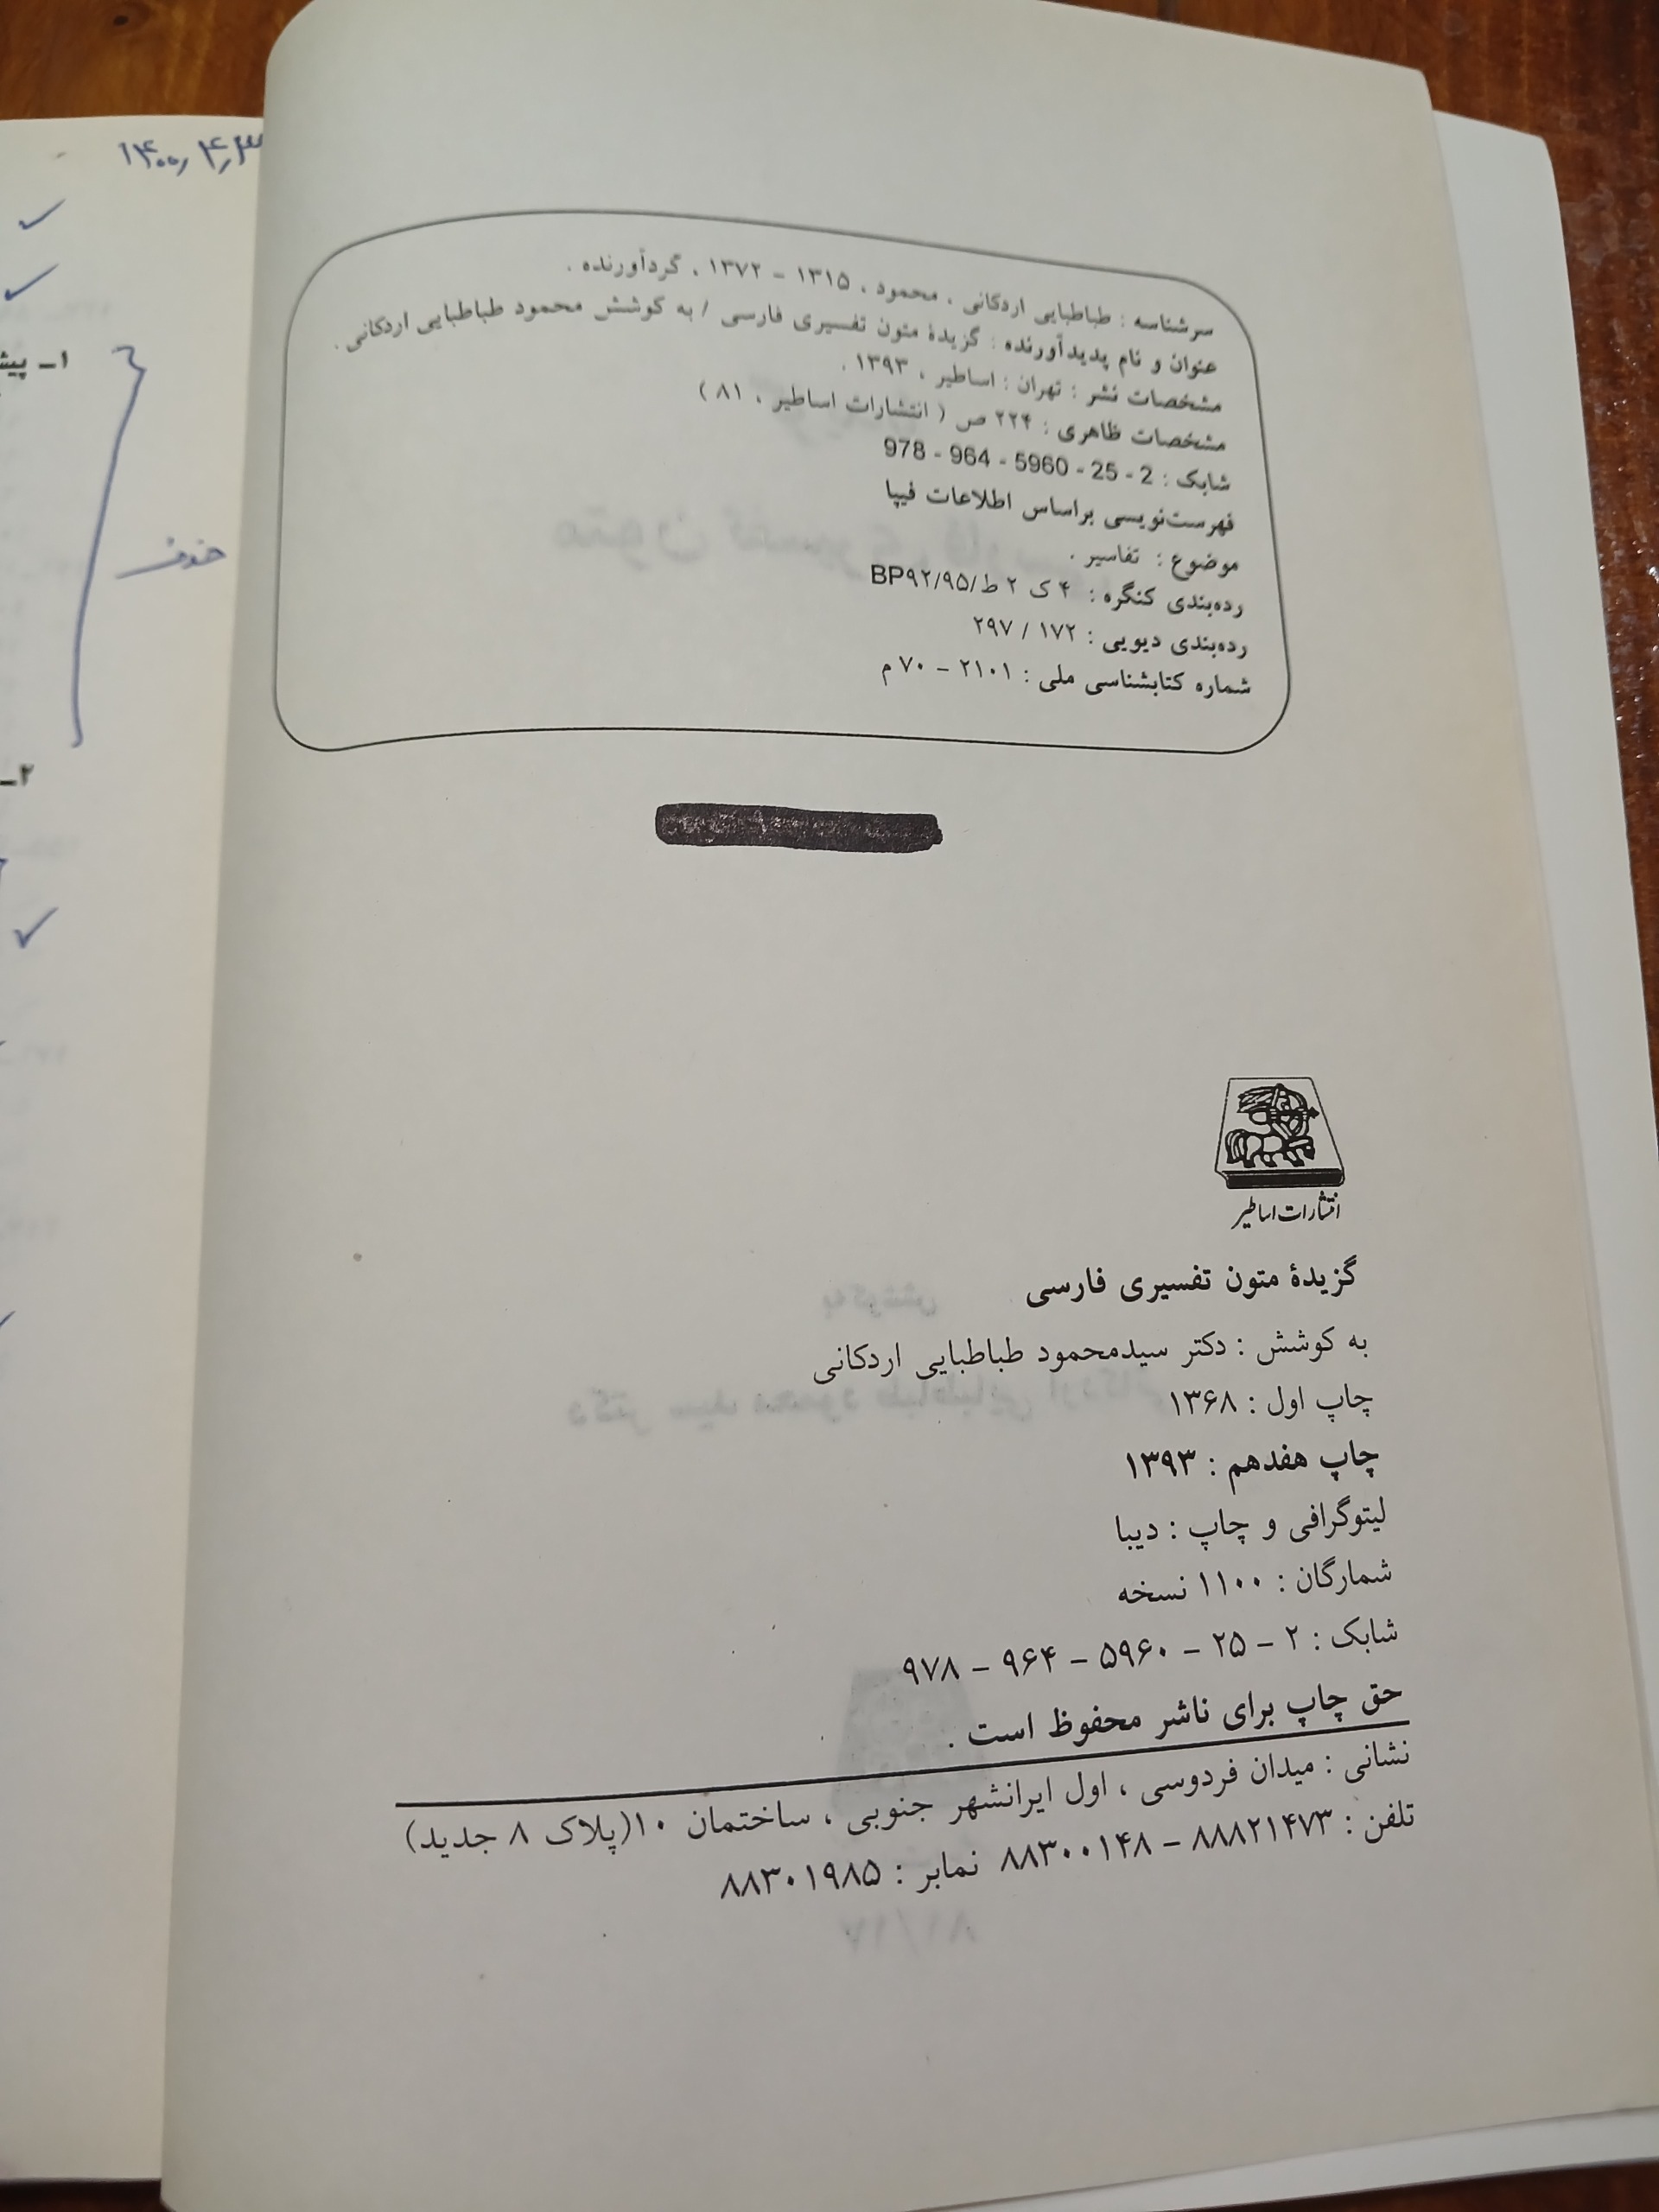 ۱۴۰۰٫۴٫۳
۱ـ پیشـ
حذف
۲ـ
سرشناسه : طباطبایی اردکانی ، محمود ، ۱۳۱۵ - ۱۳۷۲ ، گردآورنده .
عنوان و نام پدیدآورنده : گزیدهٔ متون تفسیری فارسی / به کوشش محمود طباطبایی اردکانی .
مشخصات نشر : تهران : اساطیر ، ۱۳۹۳ .
مشخصات ظاهری : ۲۲۴ ص ( انتشارات اساطیر ، ۸۱ )
شابک : 2 - 25 - 5960 - 964 - 978
فهرست‌نویسی براساس اطلاعات فیپا
موضوع : تفاسیر .
رده‌بندی کنگره : ۴ ک ۲ ط/۹۵/BP۹۲
رده‌بندی دیویی : ۱۷۲ / ۲۹۷
شماره کتابشناسی ملی : ۲۱۰۱ - ۷۰ م
انتشارات اساطیر
گزیدهٔ متون تفسیری فارسی
به کوشش : دکتر سیدمحمود طباطبایی اردکانی
چاپ اول : ۱۳۶۸
چاپ هفدهم : ۱۳۹۳
لیتوگرافی و چاپ : دیبا
شمارگان : ۱۱۰۰ نسخه
شابک : ۲ - ۲۵ - ۵۹۶۰ - ۹۶۴ - ۹۷۸
حق چاپ برای ناشر محفوظ است .
نشانی : میدان فردوسی ، اول ایرانشهر جنوبی ، ساختمان ۱۰(پلاک ۸ جدید)
تلفن : ۸۸۸۲۱۴۷۳ - ۸۸۳۰۰۱۴۸ نمابر : ۸۸۳۰۱۹۸۵